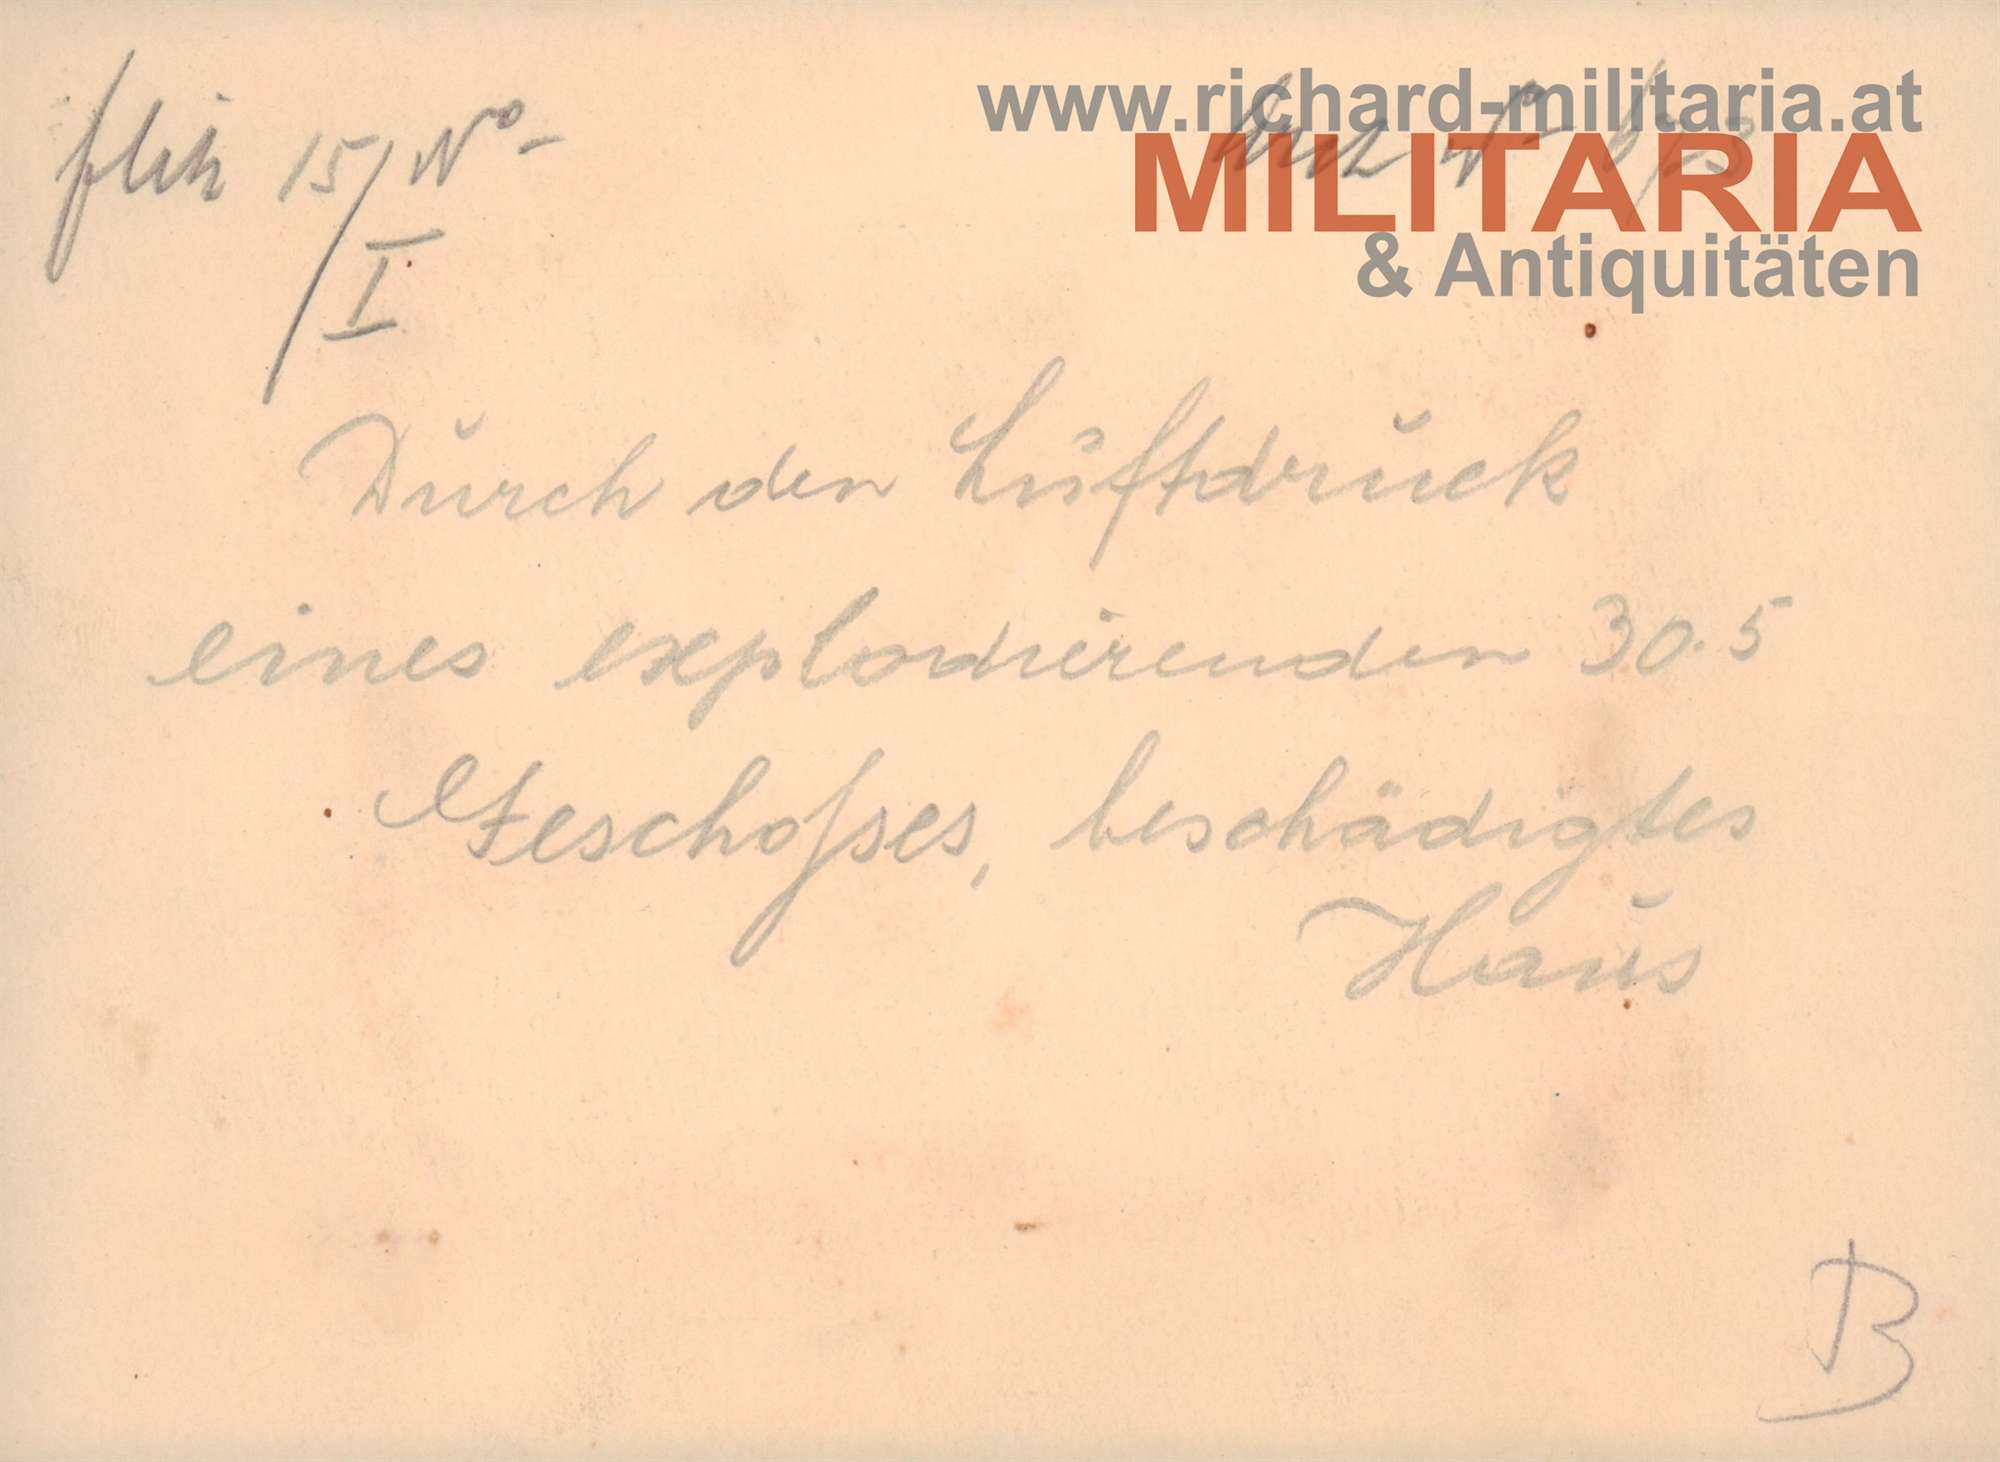 www.richard-militaria.at
MILITARIA
& Antiquitäten
15/I No -
Durch den Luftdruck
eines explodierenden 30.5
Geschosses, beschädigtes
Haus
B